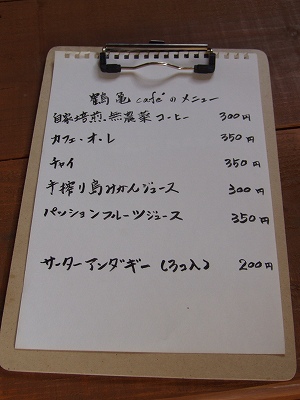 鶴亀cafeのメニュー
自家焙煎・無農薬コーヒー 300円
カフェ・オ・レ 350円
チャイ 350円
手搾り島みかんジュース 300円
パッションフルーツジュース 350円
サーターアンダギー(3コ入) 200円